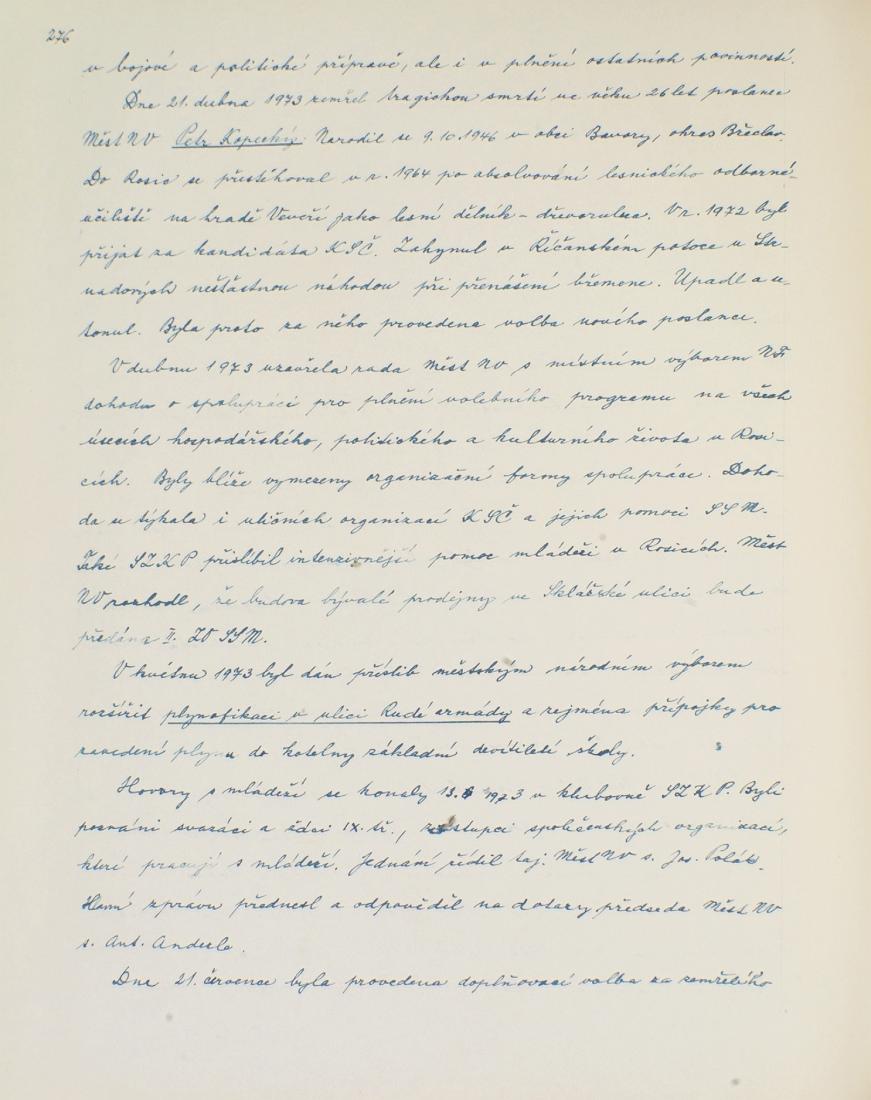 276
v bojové a politické přípravě, ale i v plnění ostatních povinností.
Dne 21. dubna 1973 zemřel tragickou smrtí ve věku 26 let poslanec
Měst NV Petr Kopecký. Narodil se 9.10.1946 v obci Bavory, okres Břeclav.
Do Rosic se přistěhoval v r. 1964 po absolvování lesnického odborné-
učiliště na hradě Veveří jako lesní dělník - dřevorubec. V r. 1972 byl
přijat za kandidáta KSČ. Zahynul v Říčanském potoce u
nešťastnou náhodou při přenášení břemene. Upadl a u-
tonul. Byla proto za něho provedena volba nového poslance.
V dubnu 1973 uzavřela rada Měst NV s místním výborem NF
dohodu o spolupráci pro plnění volebního programu na všech
úsecích hospodářského, politického a kulturního života v Rosi-
cích. Byly blíže vymezeny organizační formy spolupráce. Doho-
da se týkala i uličních organizací KSČ a jejich pomoci SSM.
Také SZKP přislíbil intenzivnější pomoc mládeži v Rosicích. Měst
NV rozhodl, že budova bývalé prodejny ve Sklářské ulici bude
předána II. ZO SSM.
V květnu 1973 byl dán příslib městským národním výborem
rozšířit plynofikaci v ulici Rudé armády a zejména přípojky pro
zavedení plynu do kotelny základní devítileté školy.
Hovory s mládeží se konaly 13. 1973 v klubovně SZKP. Byli
pozváni svazáci a žáci IX. tř., zástupci společenských organizací,
kteří pracují s mládeží. Jednání řídil taj. Měst NV s. Jos. Polák.
Hlavní zprávu přednesl a odpověděl na dotazy předseda Měst NV
s. Ant. Anderle.
Dne 21. července byla provedena doplňovací volba za zemřelého